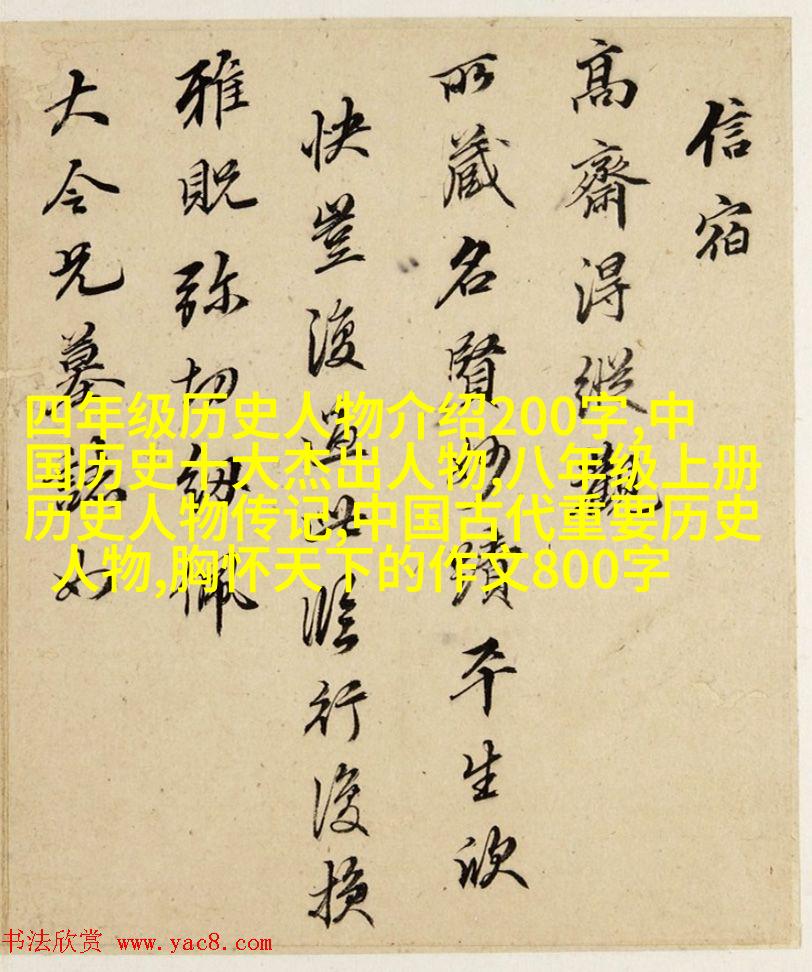 信宿
高齋淂縱觀
所蔵名賢妙蹟平生欣
快豈復過此臨行復損
雅貺弥切紉佩
大令兄墓誌如
四年级历史人物介绍200字,中
国历史十大杰出人物,八年级上册
历史人物传记,中国古代重要历史
人物,胸怀天下的作文800字
书法欣赏 www.yac8.com